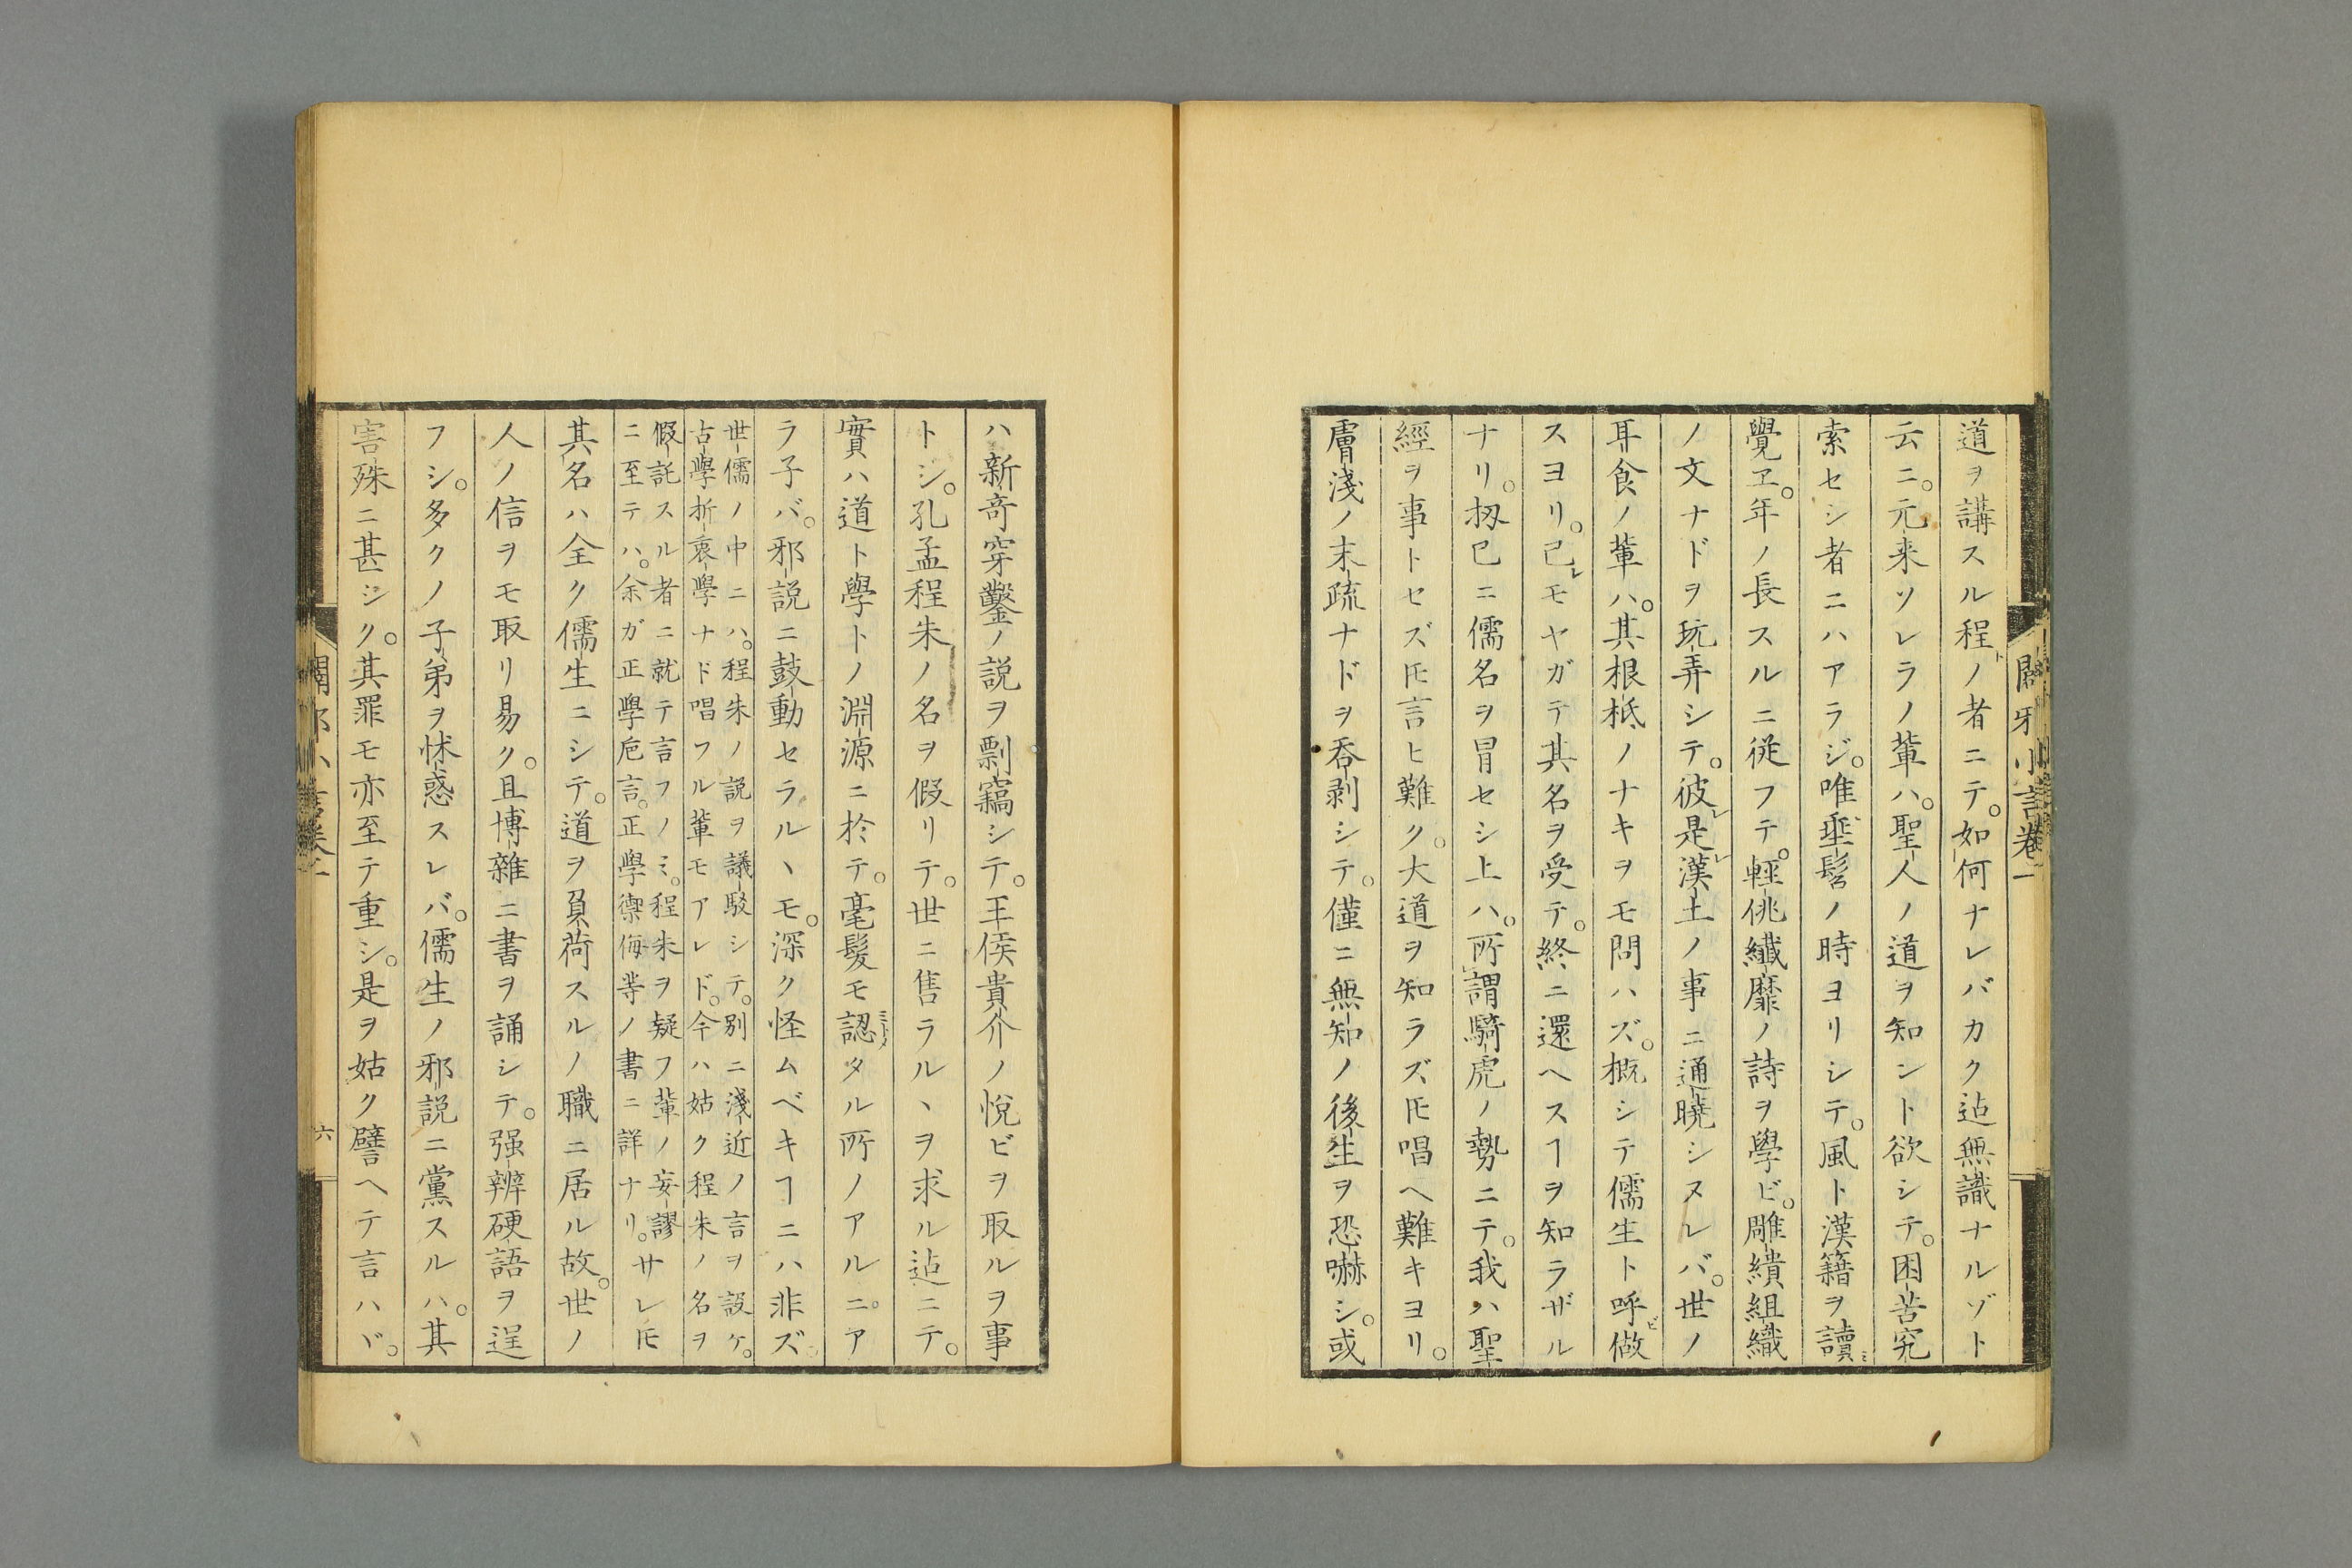 道ヲ講スル程ノ者ニテ。如何ナレバカク迠無識ナルゾト
云ニ。元来ソレラノ輩ハ。聖人ノ道ヲ知ント欲シテ。困苦究
索セシ者ニハアラジ。唯垂髫ノ時ヨリシテ。風ト漢籍ヲ讀ミ
覺ヱ。年ノ長スルニ従フテ。輕佻纎靡ノ詩ヲ學ビ。雕繢組織
ノ文ナドヲ玩弄シテ。彼レ是レ漢土ノ事ニ通曉シヌレバ。世ノ
耳食ノ輩ハ。其根柢ノナキヲモ問ハズ。概シテ儒生ト呼ビ做
スヨリ。己レモヤガテ其名ヲ受テ。終ニ還ヘスヿヲ知ラザル
ナリ。扨已ニ儒名ヲ冒セシ上ハ。所謂騎虎ノ勢ニテ。我ハ聖
經ヲ事トセズ𪜈言ヒ難ク。大道ヲ知ラズ𪜈唱ヘ難キヨリ。
膚淺ノ末疏ナドヲ呑剥シテ。僅ニ無知ノ後生ヲ恐嚇シ。或
闢邪小言卷一
ハ新奇穿鑿ノ説ヲ剽竊シテ。王侯貴介ノ悅ビヲ取ルヲ事
トシ。孔孟程朱ノ名ヲ假リテ。世ニ售ラルヽヲ求ル迠ニテ。
實ハ道ト學トノ淵源ニ於テ。毫髮モ認タル所ノアルニ。ア
ラ子バ。邪説ニ鼓動セラルヽモ。深ク怪ムベキヿニハ非ズ。
世儒ノ中ニハ。程朱ノ説ヲ議駁シテ。別ニ淺近ノ言ヲ設ケ。
古學折衷學ナド唱フル輩モアレド。今ハ姑ク程朱ノ名ヲ
假託スル者ニ就テ言フノミ。程朱ヲ疑フ輩ノ妄謬
ニ至テハ。余ガ正學卮言。正學禦侮等ノ書ニ詳ナリ。サレ𪜈
其名ハ全ク儒生ニシテ。道ヲ負荷スルノ職ニ居ル故。世ノ
人ノ信ヲモ取リ易ク。且博雜ニ書ヲ誦シテ。强辨硬語ヲ逞
フシ。多クノ子弟ヲ怵惑スレバ。儒生ノ邪説ニ黨スルハ。其
害殊ニ甚ジク。其罪モ亦至テ重シ。是ヲ姑ク譬ヘテ言ハヾ。
六